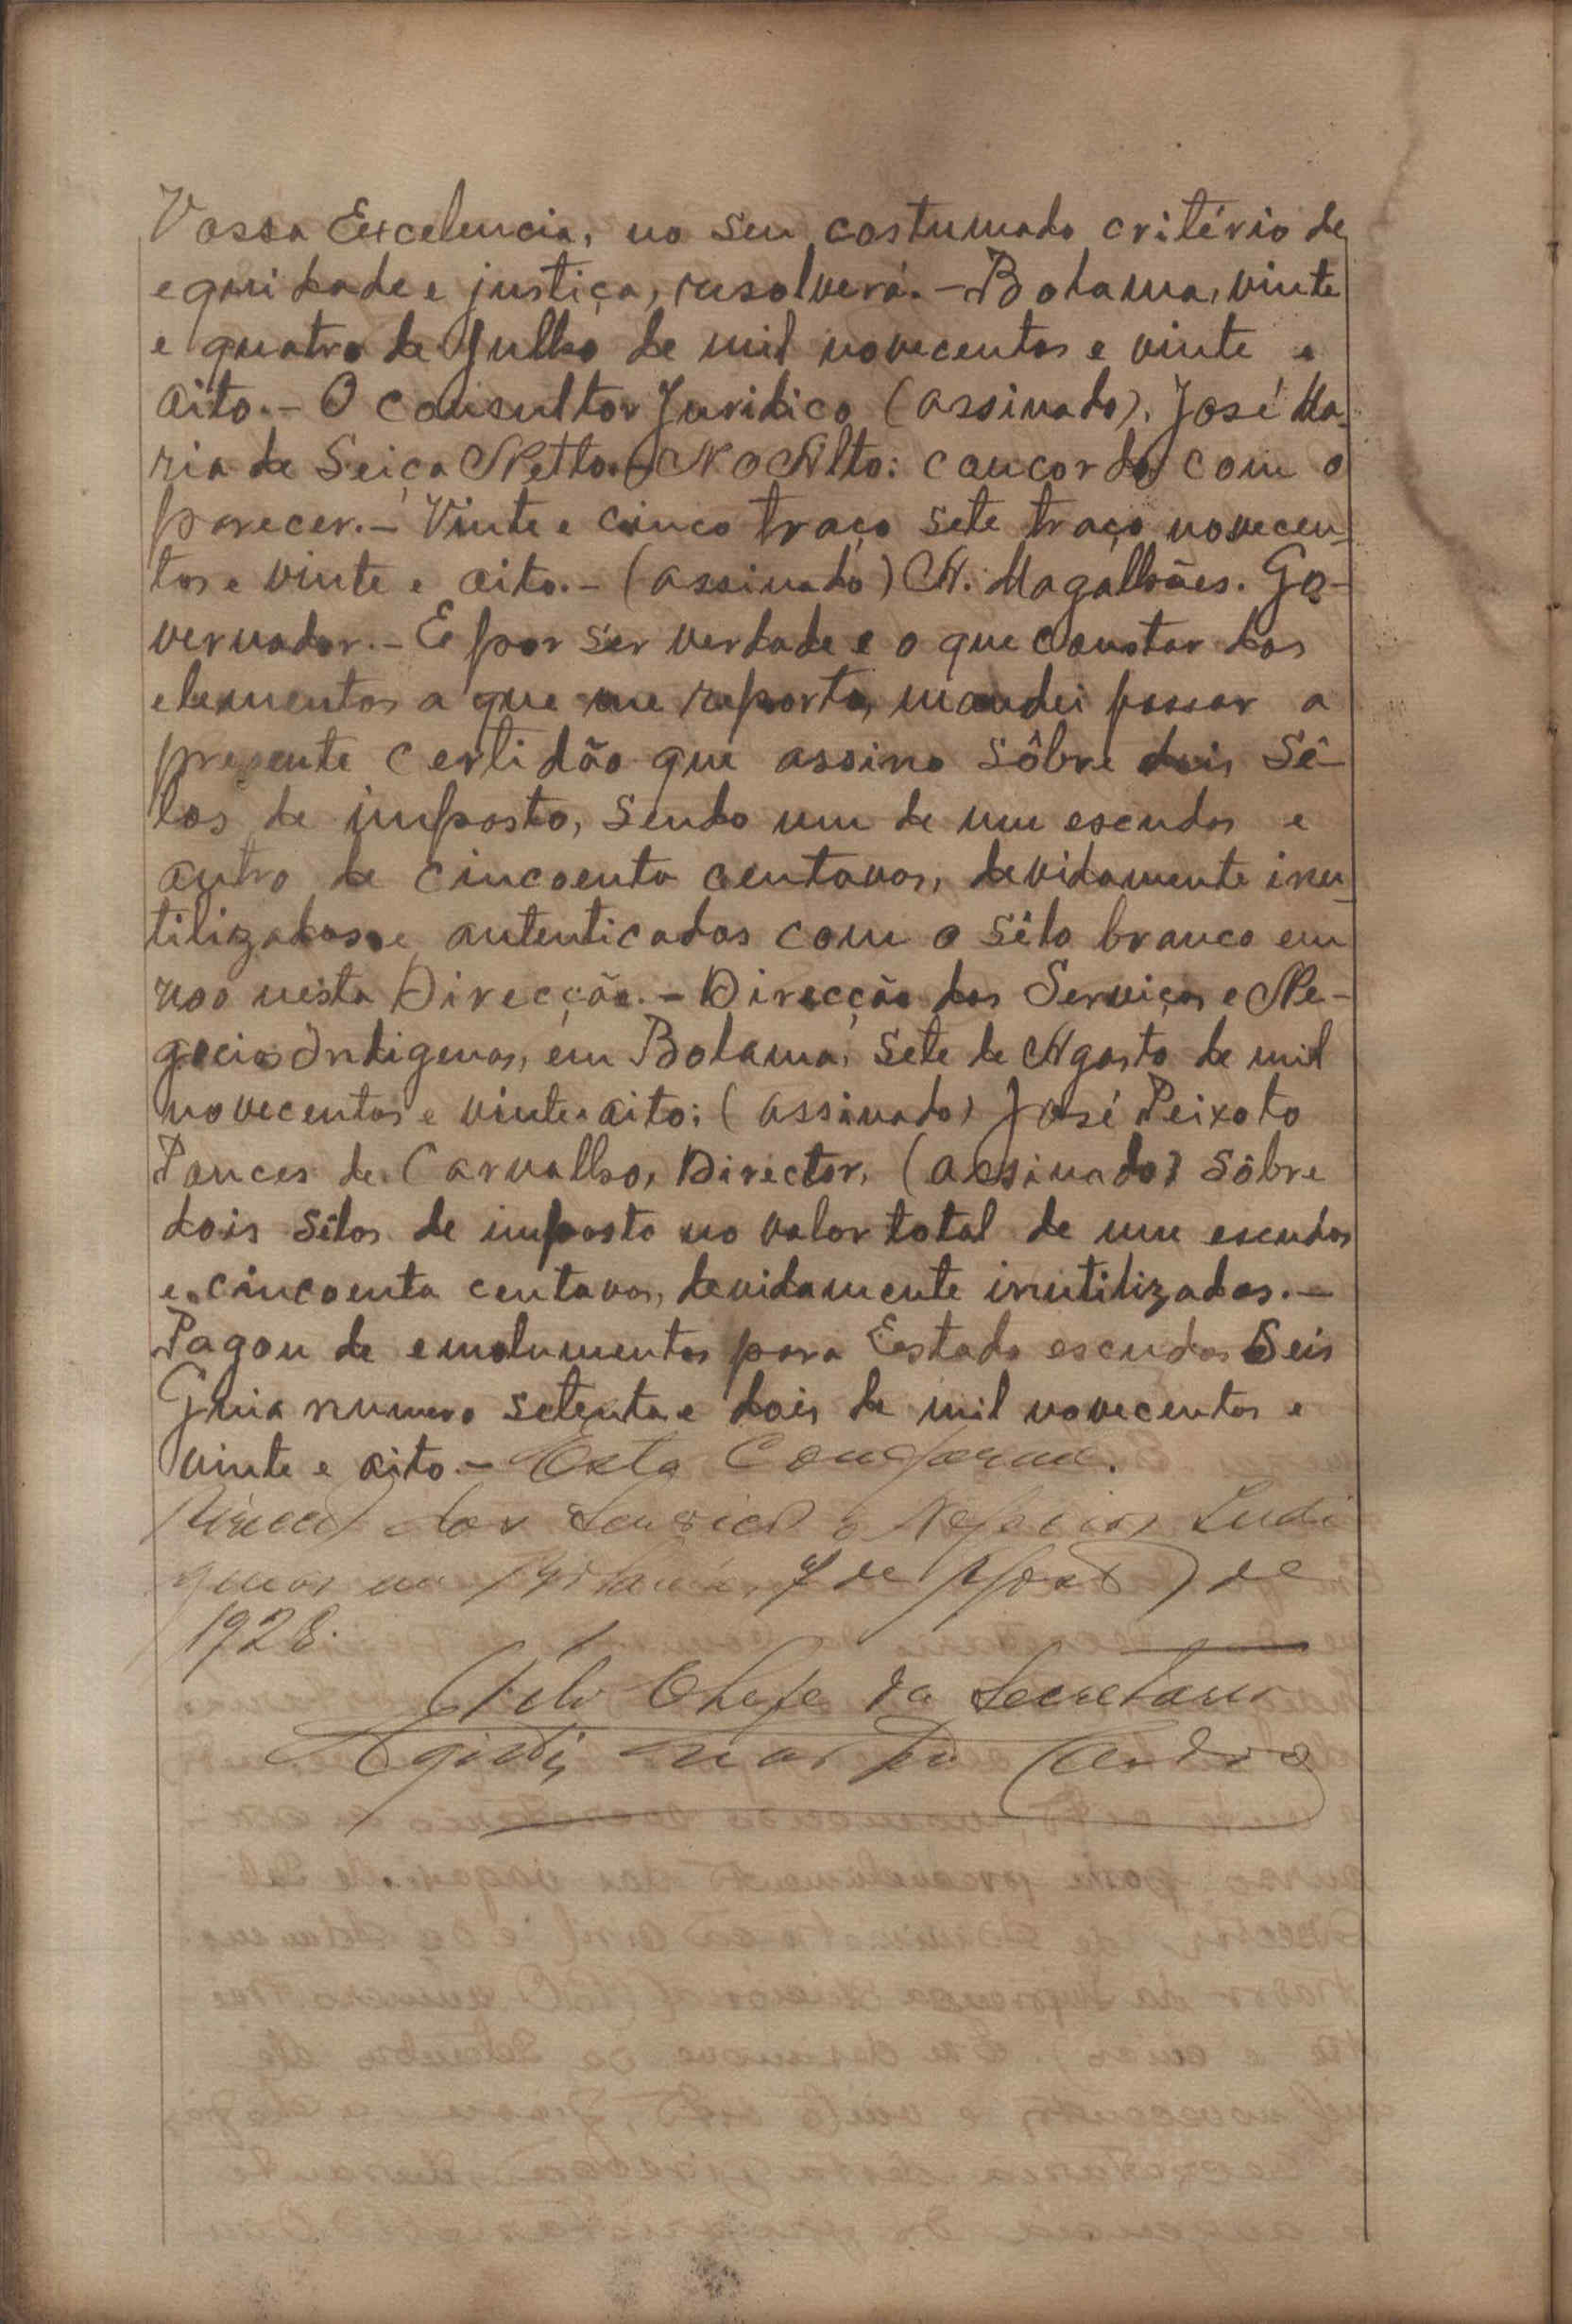 Vossa Excelencia, no seu costumado critério de
equidade e justiça, resolverá. - Bolama, vinte
e quatro de Julho de mil novecentos e vinte e
oito. - O Consultor Juridico (assinado), José Ma-
ria de Seiça Netto. - No Alto: concordo com o
parecer. - Vinte e cinco traço sete traço novecen-
tos e vinte e oito. - (assinado) A. Magalhães. Go-
vernador. - E por ser verdade e o que constar dos
elementos a que me reporto, mandei passar a
presente certidão que assino sôbre dois sê-
los de imposto, sendo um de um escudos e
outro de cincoenta centavos, devidamente inu-
tilizados e autenticados com o sêlo branco em
uso nesta Direcção. - Direcção dos Serviços e Ne-
gocios Indigenas, em Bolama, sete de Agosto de mil
novecentos e vinte e oito: (assinado) José Peixoto
Ponces de Carvalho, Director, (assinado) sôbre
dois sêlos de imposto no valor total de um escudos
e cincoenta centavos, devidamente inutilizados. -
Pagou de emolumentos para Estado escudos Seis
Guia numero setenta e dois de mil novecentos e
vinte e oito - Esta Conforme.
dos Serviços e Negocios Indi
genas em Bolama, 7 de Agosto de
1928.
Pelo Chefe da Secretaria